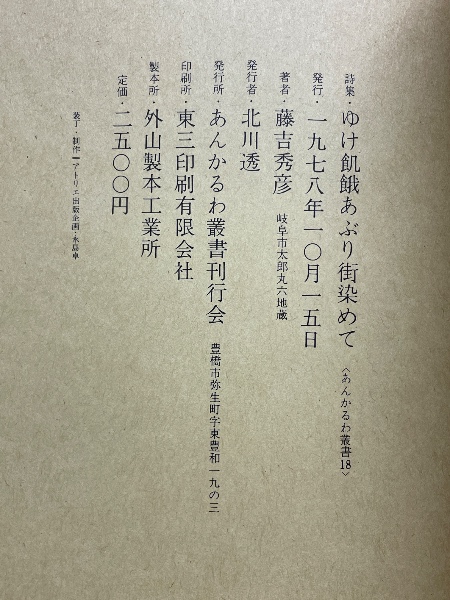 詩集・ゆけ飢餓あぶり街染めて 〈あんかるわ叢書18〉
発行・一九七八年一〇月一五日
著者・藤吉秀彦 岐阜市太郎丸六地蔵
発行者・北川透
発行所・あんかるわ叢書刊行会 豊橋市弥生町字東豊和一九の三
印刷所・東三印刷有限会社
製本所・外山製本工業所
定価・二五〇〇円
装丁・制作━アトリエ出版企画・永島卓